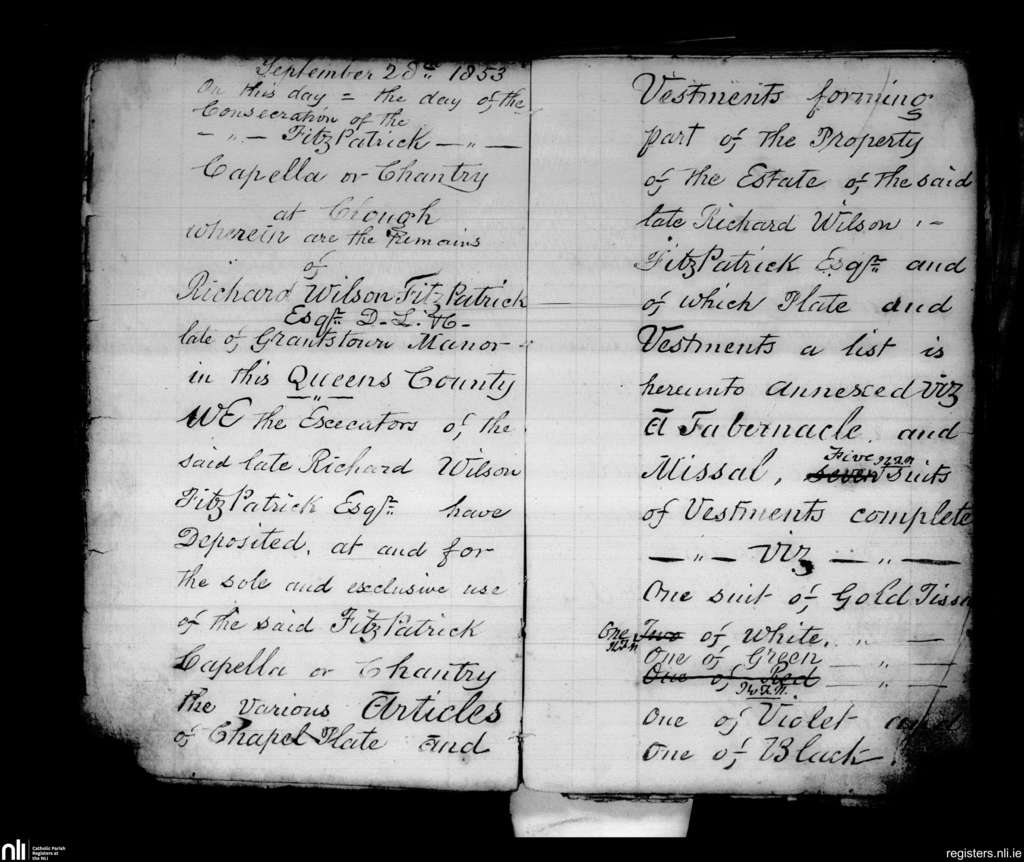 September 28th 1853
On this day = the day of the
Consecration of the
— „ — FitzPatrick — „ —
Capella or Chantry
at Clough
wherein are the Remains
of
Richard Wilson FitzPatrick
Esqr. D. L. &c-
late of Grantstown Manor
in this Queens County
— „ —
WE the Excecutors of the
said late Richard Wilson
FitzPatrick Esqr. have
Deposited, at and for
the sole and exclusive use
of the said FitzPatrick
Capella or Chantry
the various Articles
of Chapel Plate and
Vestments forming
part of the Property
of the Estate of the said
late Richard Wilson
FitzPatrick Esqr. and
of which Plate and
Vestments a list is
hereunto annexed viz
A Tabernacle, and
Five
Missal, seven Suits
of Vestments complete
— „ — viz — „ —
One suit of Gold Tissu
One Two of White, „ —
One of Green — „ —
One of Red — „ —
one of Violet and
one of Black.
nli
Catholic Parish
Registers at
the NLI
registers.nli.ie